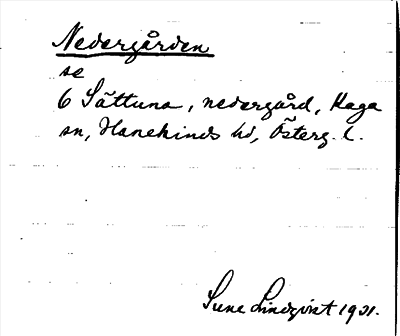 Nedergården
se
6 Sättuna, nedergård, Kaga
sn, Hanekinds hd, Österg. l.
Sune Lindqvist 1921.